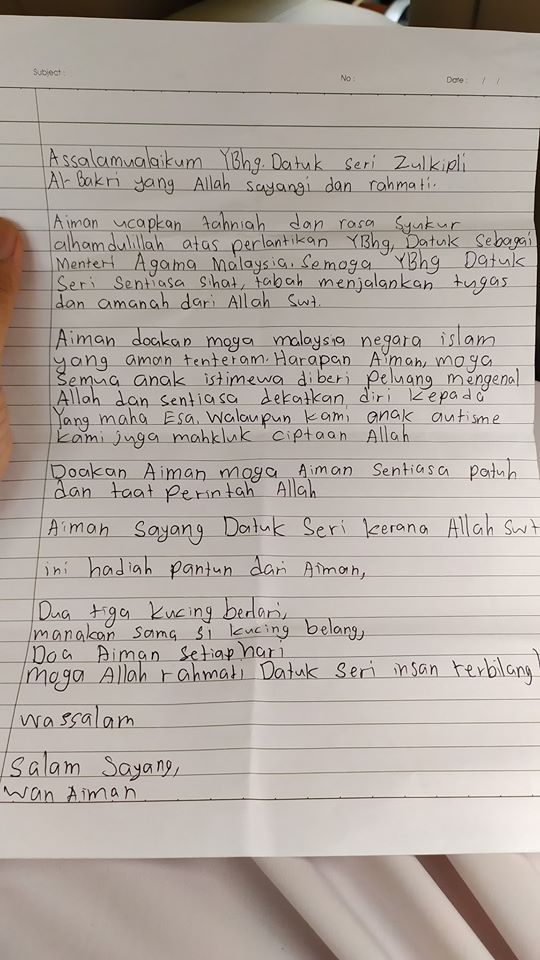 Subject :
No :
Date : / /
Assalamualaikum YBhg. Datuk Seri Zulkipli
Al-Bakri yang Allah sayangi dan rahmati.
Aiman ucapkan tahniah dan rasa Syukur
alhamdulillah atas perlantikan YBhg, Datuk Sebagai
Menteri Agama Malaysia. Semoga YBhg Datuk
Seri Sentiasa Sihat, tabah menjalankan tugas
dan amanah dari Allah Swt.
Aiman doakan moga malaysia negara islam
yang aman tenteram. Harapan Aiman, moga
Semua anak istimewa diberi peluang mengenal
Allah dan sentiasa dekatkan diri kepada
Yang maha Esa. Walaupun kami anak autisme
kami juga mahkluk ciptaan Allah
Doakan Aiman moga Aiman Sentiasa patuh
dan taat perintah Allah
Aiman Sayang Datuk Seri kerana Allah Swt
ini hadiah pantun dari Aiman,
Dua tiga kucing berlari,
manakan sama si kucing belang,
Doa Aiman setiap hari
moga Allah rahmati Datuk Seri insan terbilang!
Wassalam
Salam Sayang,
Wan Aiman